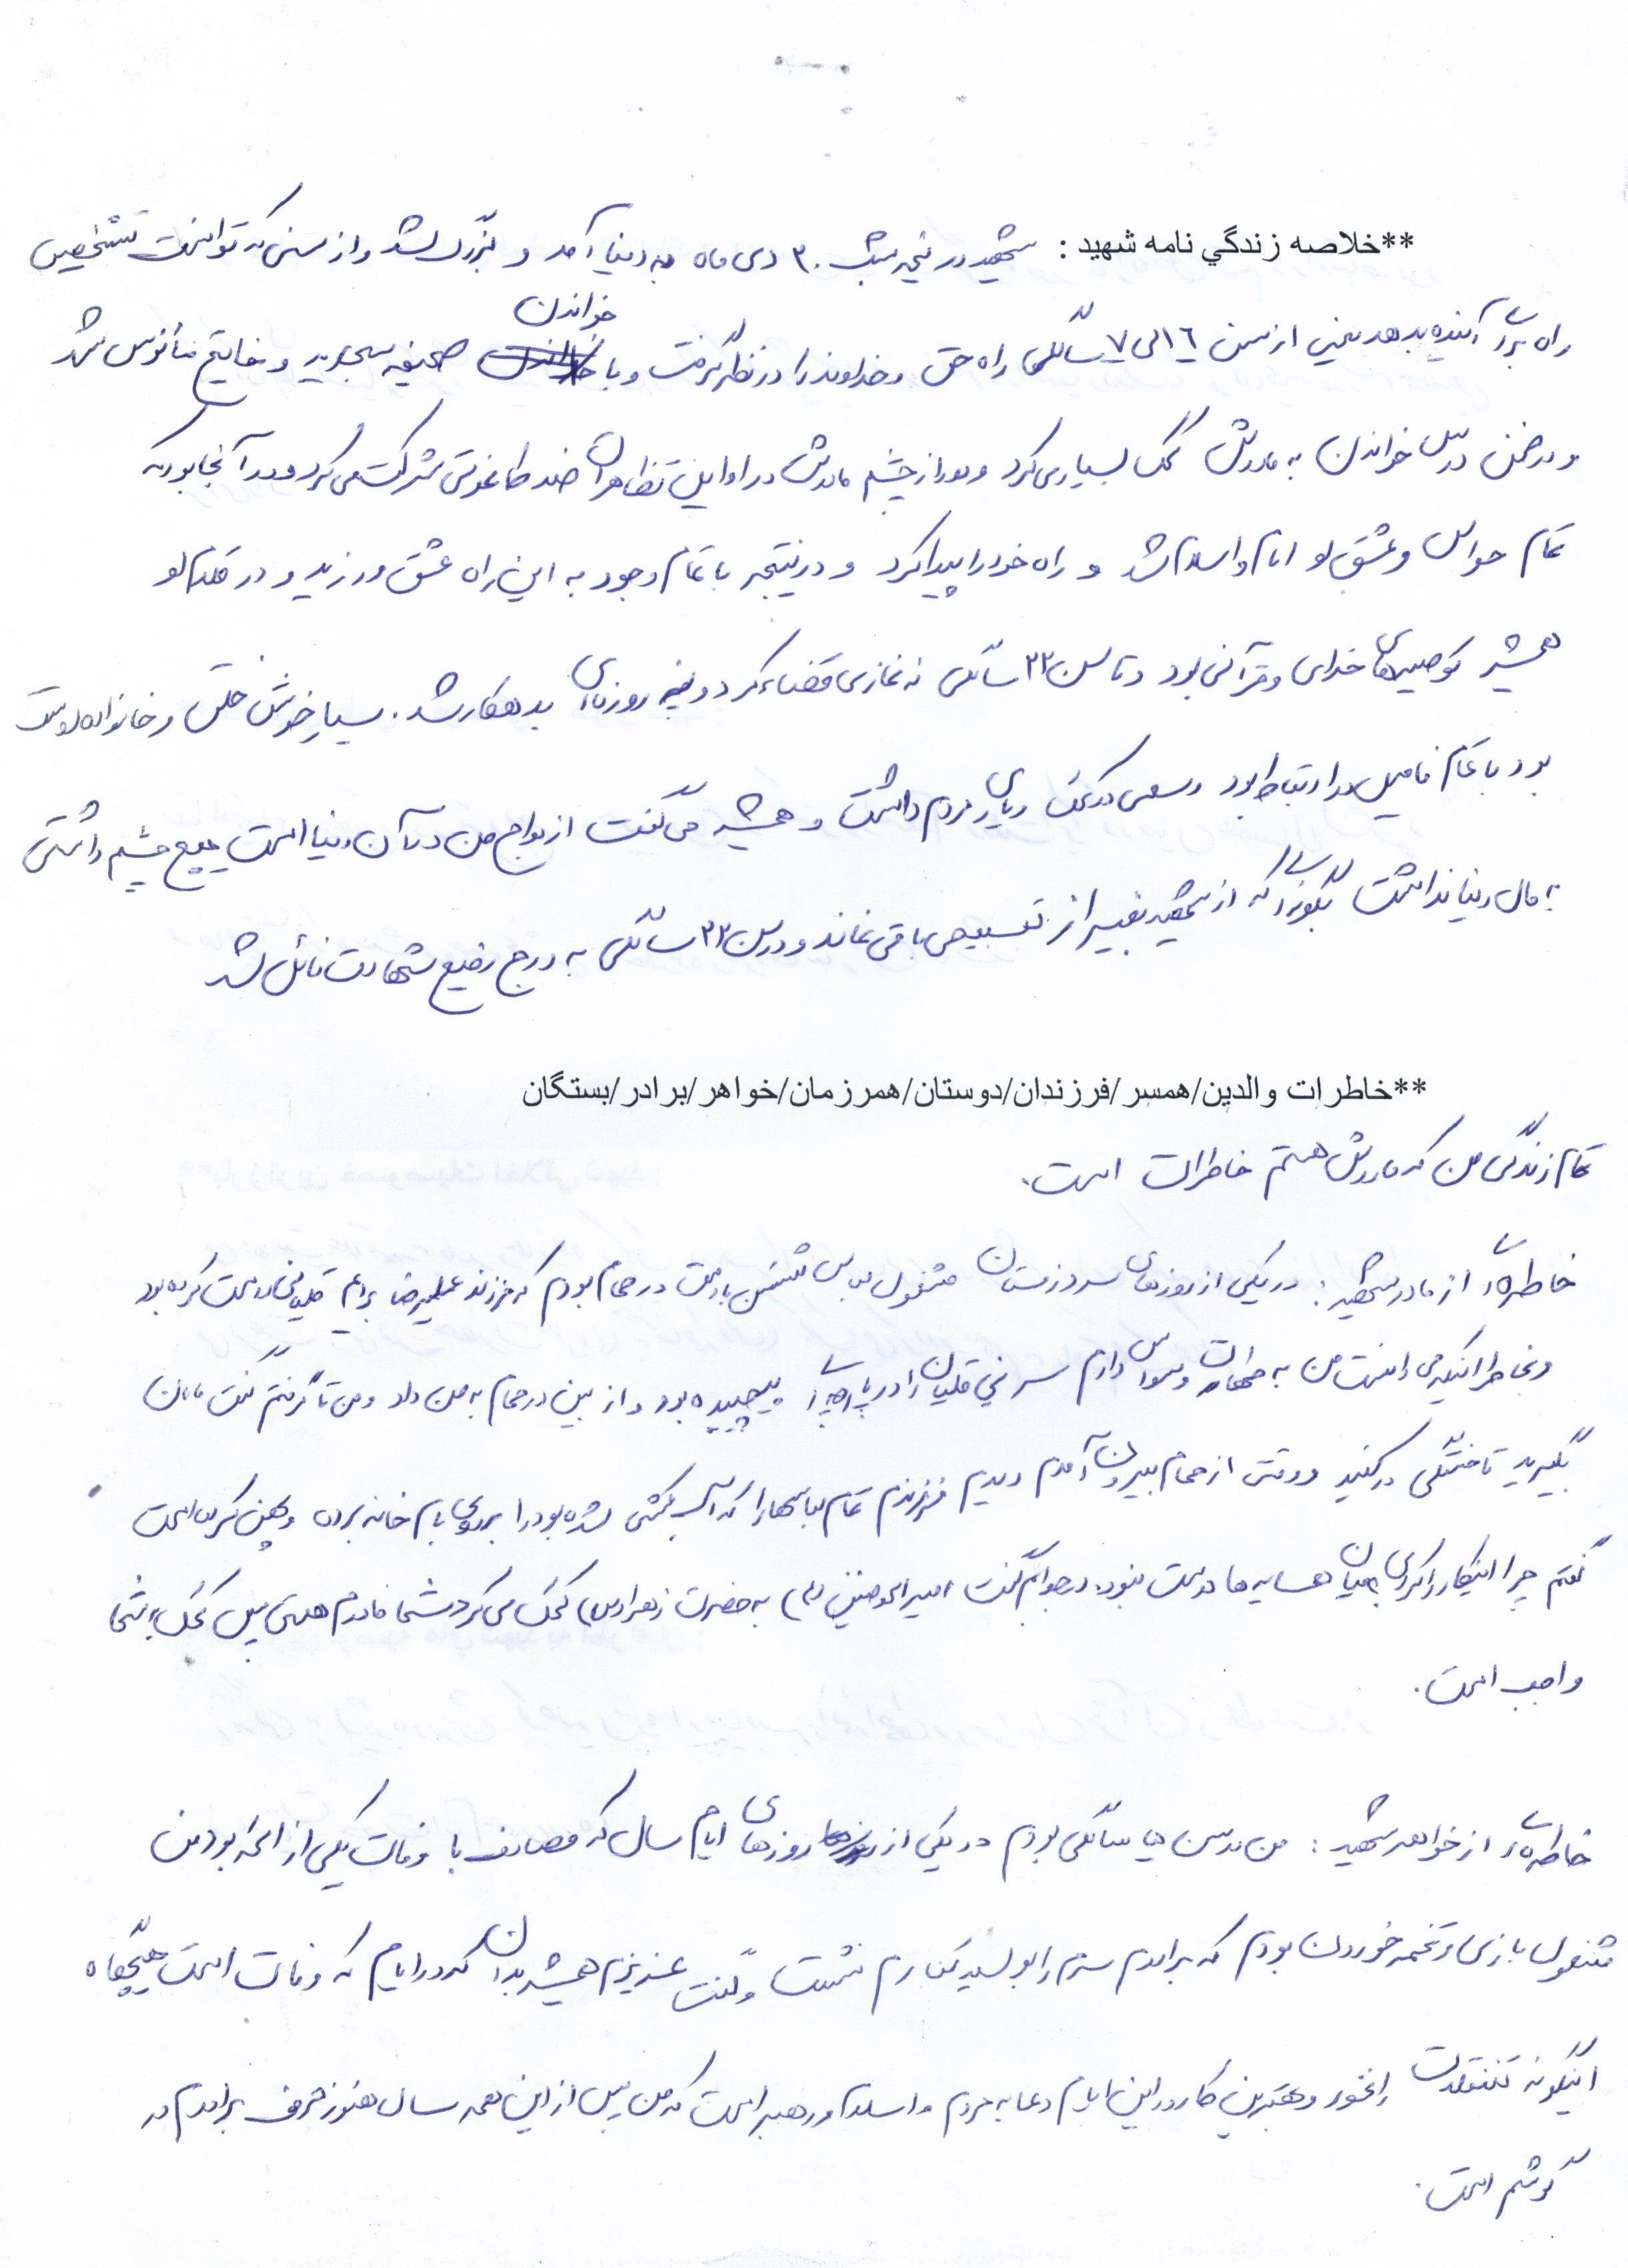 **خلاصه زندگي نامه شهيد : شهید در نیمه شب ۳۰ دی ماه به دنیا آمد و بزرگ شد و از سنی که توانست تشخیص
راه برای آینده بدهد یعنی از سن ۱۶ الی ۱۷ سالگی راه حق و خداوند را در نظر گرفت و با خواندن صحیفه سجادیه و مفاتیح مأنوس شد
و در ضمن درس خواندن به مادرش کمک بسیاری کرد و دور از چشم مادرش در اوایل تظاهرات ضد طاغوتی شرکت می کرد و در آنجا بود که
تمام حواس و عشق او امام و اسلام شد و راه خود را پیدا کرد و در نتیجه با تمام وجود به این راه عشق ورزید و در کلام او
همیشه توصیه های خدای و قرآنی بود و تا سن ۳۳ سالگی نه نمازی قضاء کرد و نه روزه ای بدهکار شد. بسیار خوش خلق و خانواده دوست
بود با تمام فامیل در ارتباط بود و سعی در کمک و یاری مردم داشت و همیشه می گفت ازدواج من در آن دنیا است هیچ چشم داشتی
به مال دنیا نداشت بگونه ای که از شهید بغیر از تسبیحی باقی نماند و در سن ۳۳ سالگی به درجه رفیع شهادت نائل شد
**خاطرات والدين/همسر/فرزندان/دوستان/همرزمان/خواهر/برادر/بستگان
تمام زندگی من که مادرش هستم خاطرات است.
خاطره ای از مادر شهید : در یکی از روزهای سرد زمستان مشغول لباس شستن با دست در حمام بودم که فرزندم علیرضا برایم قلیانی درست کرده بود
و بخاطر اینکه می دانست من به طهارت وسواس دارم سر نی قلیان را در پارچه ای پیچیده بود و از بین در حمام به من داد و من تا گرفتم گفت مامان
بگیرید تا خستگی در کنید و وقتی از حمام بیرون آمدم دیدم فرزندم تمام لباسها را که آب کشی شده بود را بر روی بام خانه برده و پهن کرده است
گفتم چرا اینکار را کردی میان همسایه ها درست نبود. در جوابم گفت امیرالمومنین (ع) به حضرت زهرا (س) کمک می کرد شما مادرم هستی پس کمک به شما
واجب است.
خاطره ای از خواهر شهید : من در سن سالگی بودم در یکی از روزهای ایام سال که مصادف با وفات یکی از ائمه بود من
مشغول بازی و تخمه خوردن بودم که برادرم سرم را بوسید کنارم نشست و گفت عزیزم همیشه بدان که در ایام که وفات است هیچگاه
اینگونه تنقلات را نخور و بهترین کار در این ایام دعا به مردم و اسلام و رهبر است که من پس از این همه سال هنوز حرف برادرم در
گوشم است.